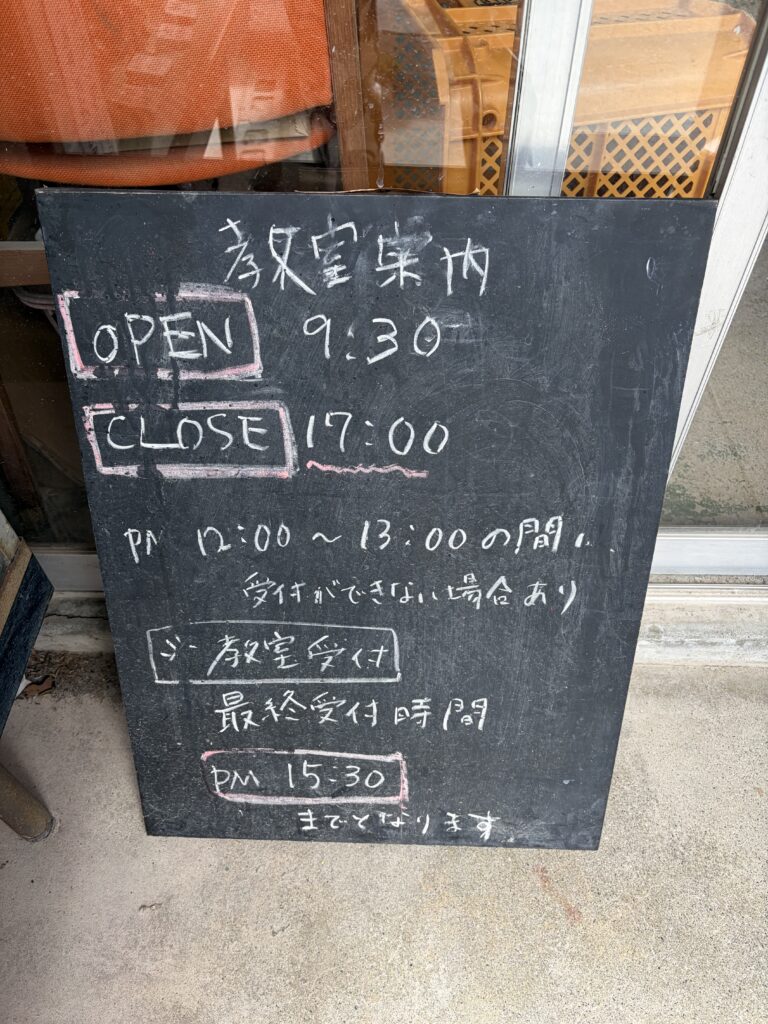 教室案内
OPEN 9:30
CLOSE 17:00
PM 12:00～13:00の間に
受付ができない場合あり
※教室受付
最終受付時間
PM 15:30
までとなります